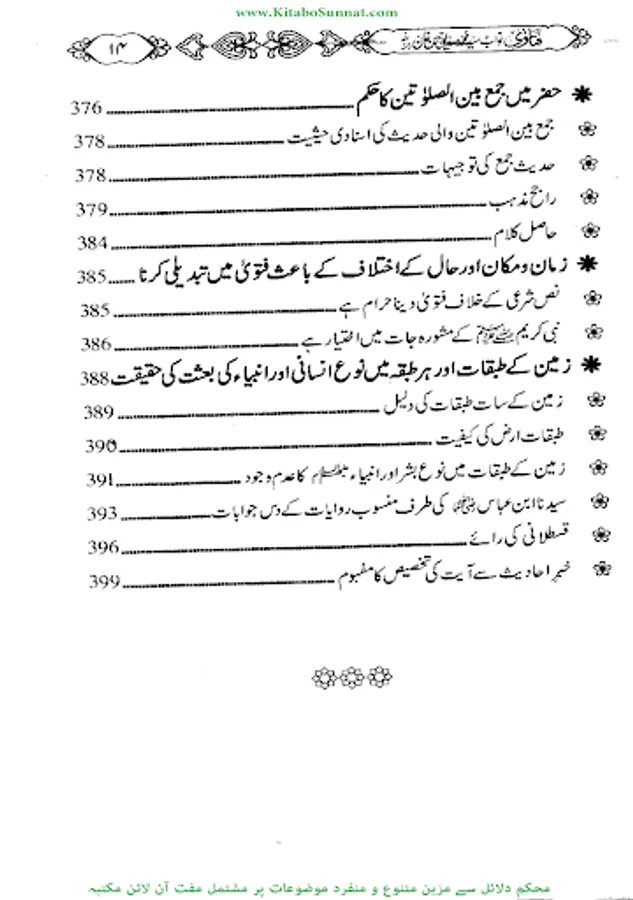 www.KitaboSunnat.com
فتاویٰ نواب سید محمد صدیق حسن خان ۱۴
حضر میں جمع بین الصلوٰتین کا حکم 376
جمع بین الصلوٰتین والی حدیث کی اسنادی حیثیت 378
حدیث جمع کی توجیہات 378
راجح مذہب 379
حاصل کلام 384
زمان و مکان اور حال کے اختلاف کے باعث فتویٰ میں تبدیلی کرنا 385
نص شرعی کے خلاف فتویٰ دینا حرام ہے 385
نبی کریم ﷺ کے مشورہ جات میں اختیار ہے 386
زمین کے طبقات اور ہر طبقہ میں نوع انسانی اور انبیاء کی بعثت کی حقیقت 388
زمین کے سات طبقات کی دلیل 389
طبقات ارض کی کیفیت 390
زمین کے طبقات میں نوع بشر اور انبیاء علیہم السلام کا عدم وجود 391
سیدنا ابن عباس رضی اللہ عنہما کی طرف منسوب روایات کے دس جوابات 393
قسطلانی کی رائے 396
خبر احادیث سے آیت کی تخصیص کا مفہوم 399
محکم دلائل سے مزین متنوع و منفرد موضوعات پر مشتمل مفت آن لائن مکتبہ